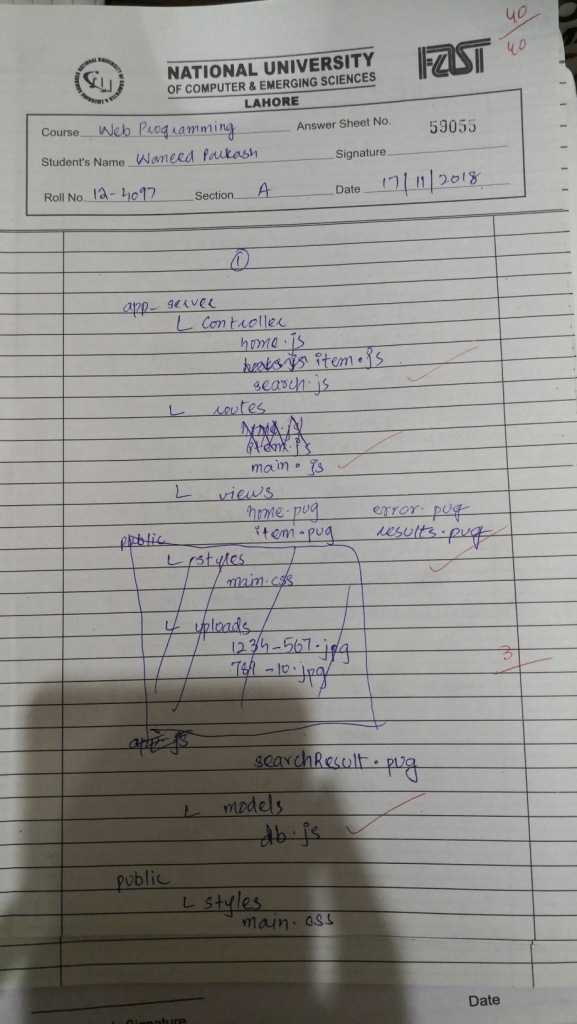 40
40
NATIONAL UNIVERSITY
OF COMPUTER & EMERGING SCIENCES
LAHORE
FAST
Course Web Programming Answer Sheet No. 59055
Student's Name Waneed Parkash Signature
Roll No. 12-4097 Section A Date 17/11/2018
1
app_server
L Controller
home.js
item.js
search.js
L routes
main.js
L views
home.pug error.pug
item.pug results.pug
public
L styles
main.css
L uploads
1234-567.jpg
789-10.jpg
3
app.js
searchResult.pug
L models
db.js
public
L styles
main.css
Date
Signature